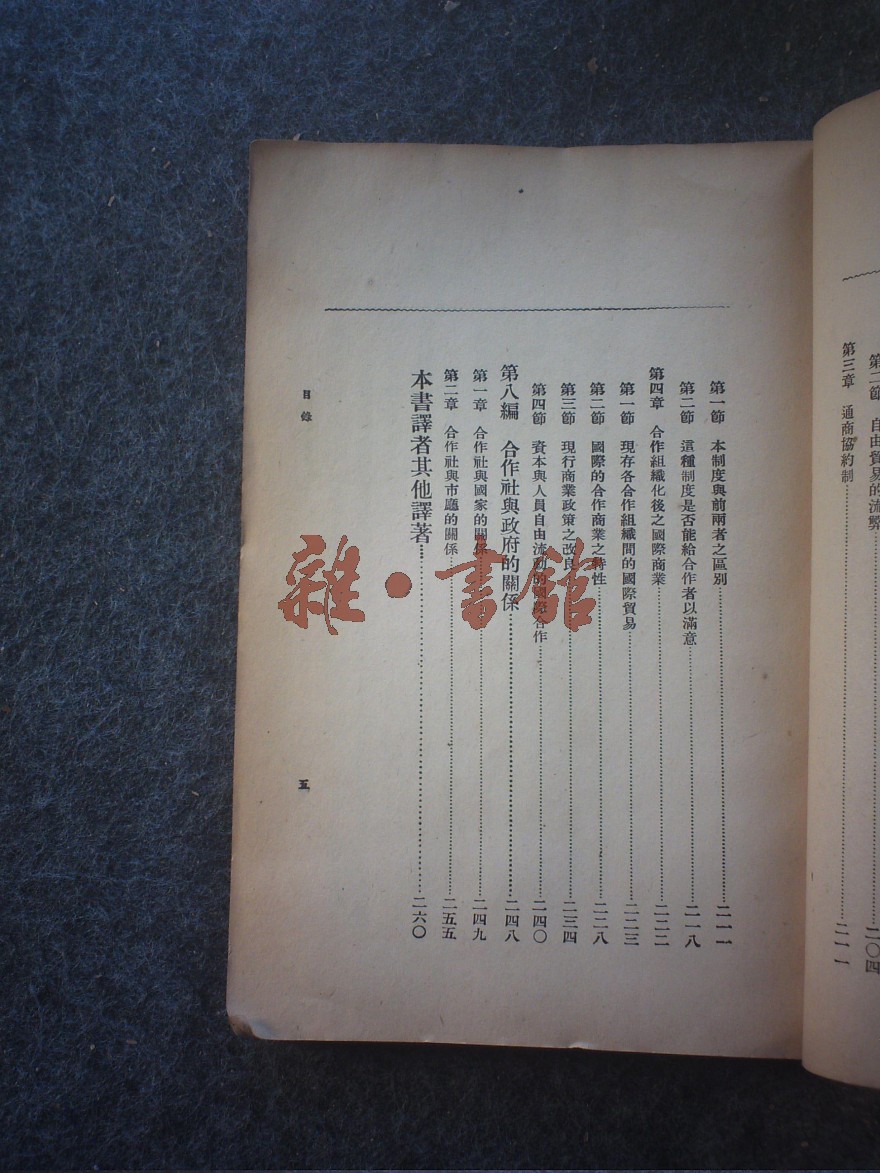 第二節　自由貿易的流弊……二〇四
第三章　通商協約制……二一一
第一節　本制度與前兩者之區別……二一一
第二節　這種制度是否能給合作者以滿意……二一八
第四章　合作組織化後之國際商業……二二二
第一節　現存各合作組織間的國際貿易……二二三
第二節　國際的合作商業之特性……二二八
第三節　現行商業政策之改良……二三四
第四節　資本與人員自由流動的國際合作……二四〇
第八編　合作社與政府的關係……二四八
第一章　合作社與國家的關係……二四九
第二章　合作社與市廳的關係……二五五
本書譯者其他譯著……二六〇
目錄
五
雜·書館